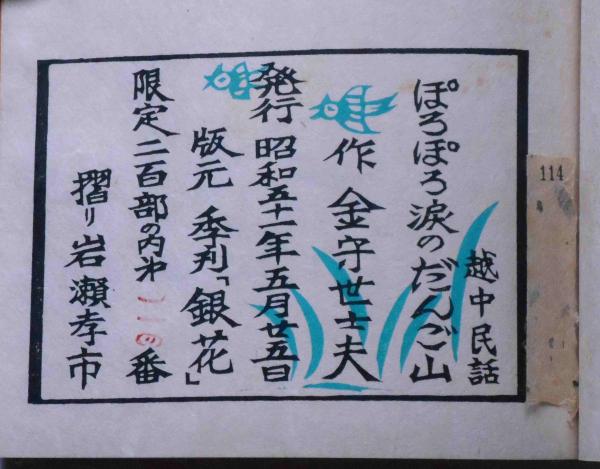 越中民話
ぽろぽろ涙のだんご山
作 金守世士夫
発行 昭和五十一年五月廿五日
版元 季刊「銀花」
限定二百部の内第 番
摺り 岩瀬孝市
114